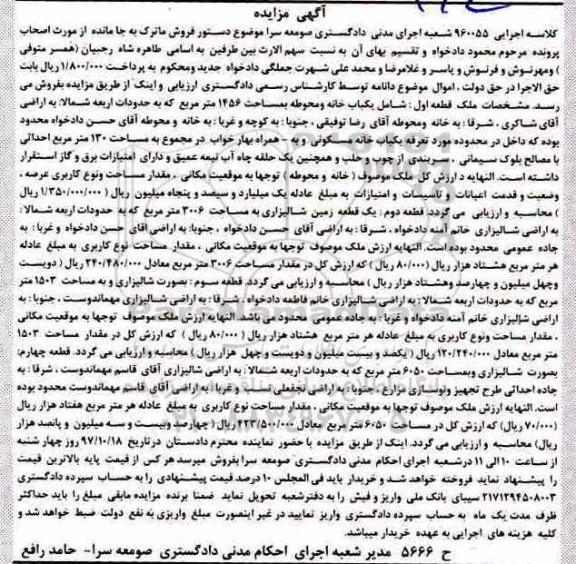 آگهی مزایده
کلاسه اجرایی 960055 شعبه اجرای مدنی دادگستری صومعه سرا موضوع دستور فروش ماترک به جا مانده از مورث اصحاب
پرونده مرحوم محمود دادخواه و تقسیم بهای آن به نسبت سهم الارث بین طرفین به اسامی طاهره شاه رجبیان (همسر متوفی
) ومهرنوش و فرنوش و یاسر و غلامرضا و محمد علی شهرت جملگی دادخواه جدید ومحکوم به پرداخت 1/800/000 ریال بابت
حق الاجرا در حق دولت ، اموال موضوع دادنامه توسط کارشناس رسمی دادگستری ارزیابی و اینک از طریق مزایده بفروش می
رسد. مشخصات ملک قطعه اول : شامل یکباب خانه ومحوطه بمساحت 1456 متر مربع که به حدودات اربعه شمالا: به اراضی
آقای شاکری ، شرقا : به خانه ومحوطه آقای رضا توفیقی ، جنوبا : به کوچه و غربا : به خانه و محوطه آقای حسن دادخواه محدود
بوده که داخل در محدوده مورد تعرفه یکباب خانه مسکونی و به همراه بهار خواب در مجموع به مساحت 130 متر مربع احداثی
با مصالح بلوک سیمانی ، سربندی از چوب و حلب و همچنین یک حلقه چاه آب نیمه عمیق و دارای امتیازات برق و گاز استقرار
داشته است. النهایه د ارزش کل ملک موصوف ( خانه و محوطه ) توجها به موقعیت مکانی ، مقدار مساحت ونوع کاربری عرصه ،
وضعیت و قدمت اعیانات و تاسیسات و امتیازات به مبلغ عادله یک میلیارد و سیصد و پنجاه میلیون ریال (1/350/000/000 ریال
) محاسبه و ارزیابی می گردد. قطعه دوم : یک قطعه زمین شالیزاری به مساحت 3006 متر مربع که به حدودات اربعه شمالا :
به اراضی شالیزاری خانم آمنه دادخواه ، شرقا : به اراضی آقای حسن دادخواه ، جنوبا: به اراضی اقای حسن دادخواه و غربا : به
جاده عمومی محدود بوده است. النهایه ارزش ملک موصوف توجها به موقعیت مکانی ، مقدار مساحت نوع کاربری به مبلغ عادله
هر متر مربع هشتاد هزار ریال (80/000 ریال ) که ارزش کل در مقدار مساحت 3006 متر مربع معادل 240/480/000 ریال ( دویست
وچهل میلیون و چهارصد وهشتاد هزار ریال ) محاسبه و ارزیابی می گردد. قطعه سوم : بصورت شالیزاری و به مساحت 1503 متر
مربع که به حدودات اربعه شمالا : به اراضی شالیزاری خانم فاطمه دادخواه ، شرقا : به اراضی شالیزاری مهماندوست ، جنوبا : به
اراضی شالیزاری خانم آمنه دادخواه و غربا : به جاده عمومی محدود می باشد. النهایه ارزش ملک موصوف توجها به موقعیت مکانی
، مقدار مساحت ونوع کاربری به مبلغ عادله هر متر مربع هشتاد هزار ریال ( 80/000 ریال ) که ارزش کل در مقدار مساحت 1503
متر مربع معادل 120/240/000 ریال ( یکصد و بیست میلیون و دویست و چهل هزار ریال ) محاسبه و ارزیابی می گردد. قطعه چهارم:
بصورت شالیزاری وبمساحت 6050 متر مربع که به حدودات اربعه شمالا: به اراضی شالیزاری آقای قاسم مهماندوست ، شرقا : به
جاده احداثی طرح تجهیز ونوسازی مزارع ، جنوبا : به اراضی نجفعلی نسب و غربا : به اراضی آقای قاسم مهماندوست محدود بوده
است. النهایه ارزش ملک موصوف توجها به موقعیت مکانی ، مقدار مساحت نوع کاربری به مبلغ عادله هر متر مربع هفتاد هزار ریال
(70/000 ریال) که ارزش کل در مساحت 6050 متر مربع معادل 423/500/000 ریال ( چهارصد وبیست و سه میلیون و پانصد هزار
ریال) محاسبه و ارزیابی می گردد. اینک از طریق مزایده با حضور نماینده محترم دادستان درتاریخ 97/10/18 روز چهار شنبه
از ساعت 10 الی 11 درشعبه اجرای احکام مدنی دادگستری صومعه سرا بفروش میرسد هر کس از قیمت پایه بالاترین قیمت
را پیشنهاد نماید فروخته خواهد شد و خریدار باید فی المجلس 10 درصد قیمت پیشنهادی را به حساب سپرده دادگستری
2171294508003 سیبای بانک ملی واریز و فیش را به دفترشعبه تحویل نماید ضمنا برنده مزایده مابقی مبلغ را باید حداکثر
ظرف مدت یک ماه به حساب سپرده دادگستری واریز نمایید در غیر اینصورت مبلغ واریزی به نفع دولت ضبط خواهد شد و
کلیه هزینه های اجرایی به عهده خریدار میباشد.
ح 5666 مدیر شعبه اجرای احکام مدنی دادگستری صومعه سرا- حامد رافع